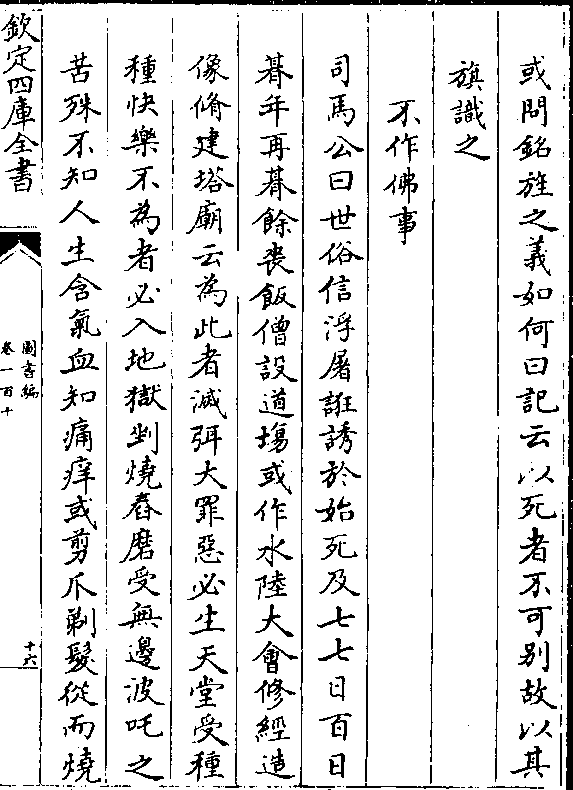 或問銘旌之義如何曰記云以死者不可别故以其
旗識之
不作佛事
司馬公曰世俗信浮屠誑誘於始死及七七日百日
朞年再朞餘喪飯僧設道場或作水陸大會修經造
像脩建塔廟云為此者滅弭大罪惡必生天堂受種
種快樂不為者必入地獄剉燒舂磨受無邊波吒之
苦殊不知人生含氣血知痛痒或剪爪剃髮從而燒
欽定四庫全書
圖書編
卷一百十
十六